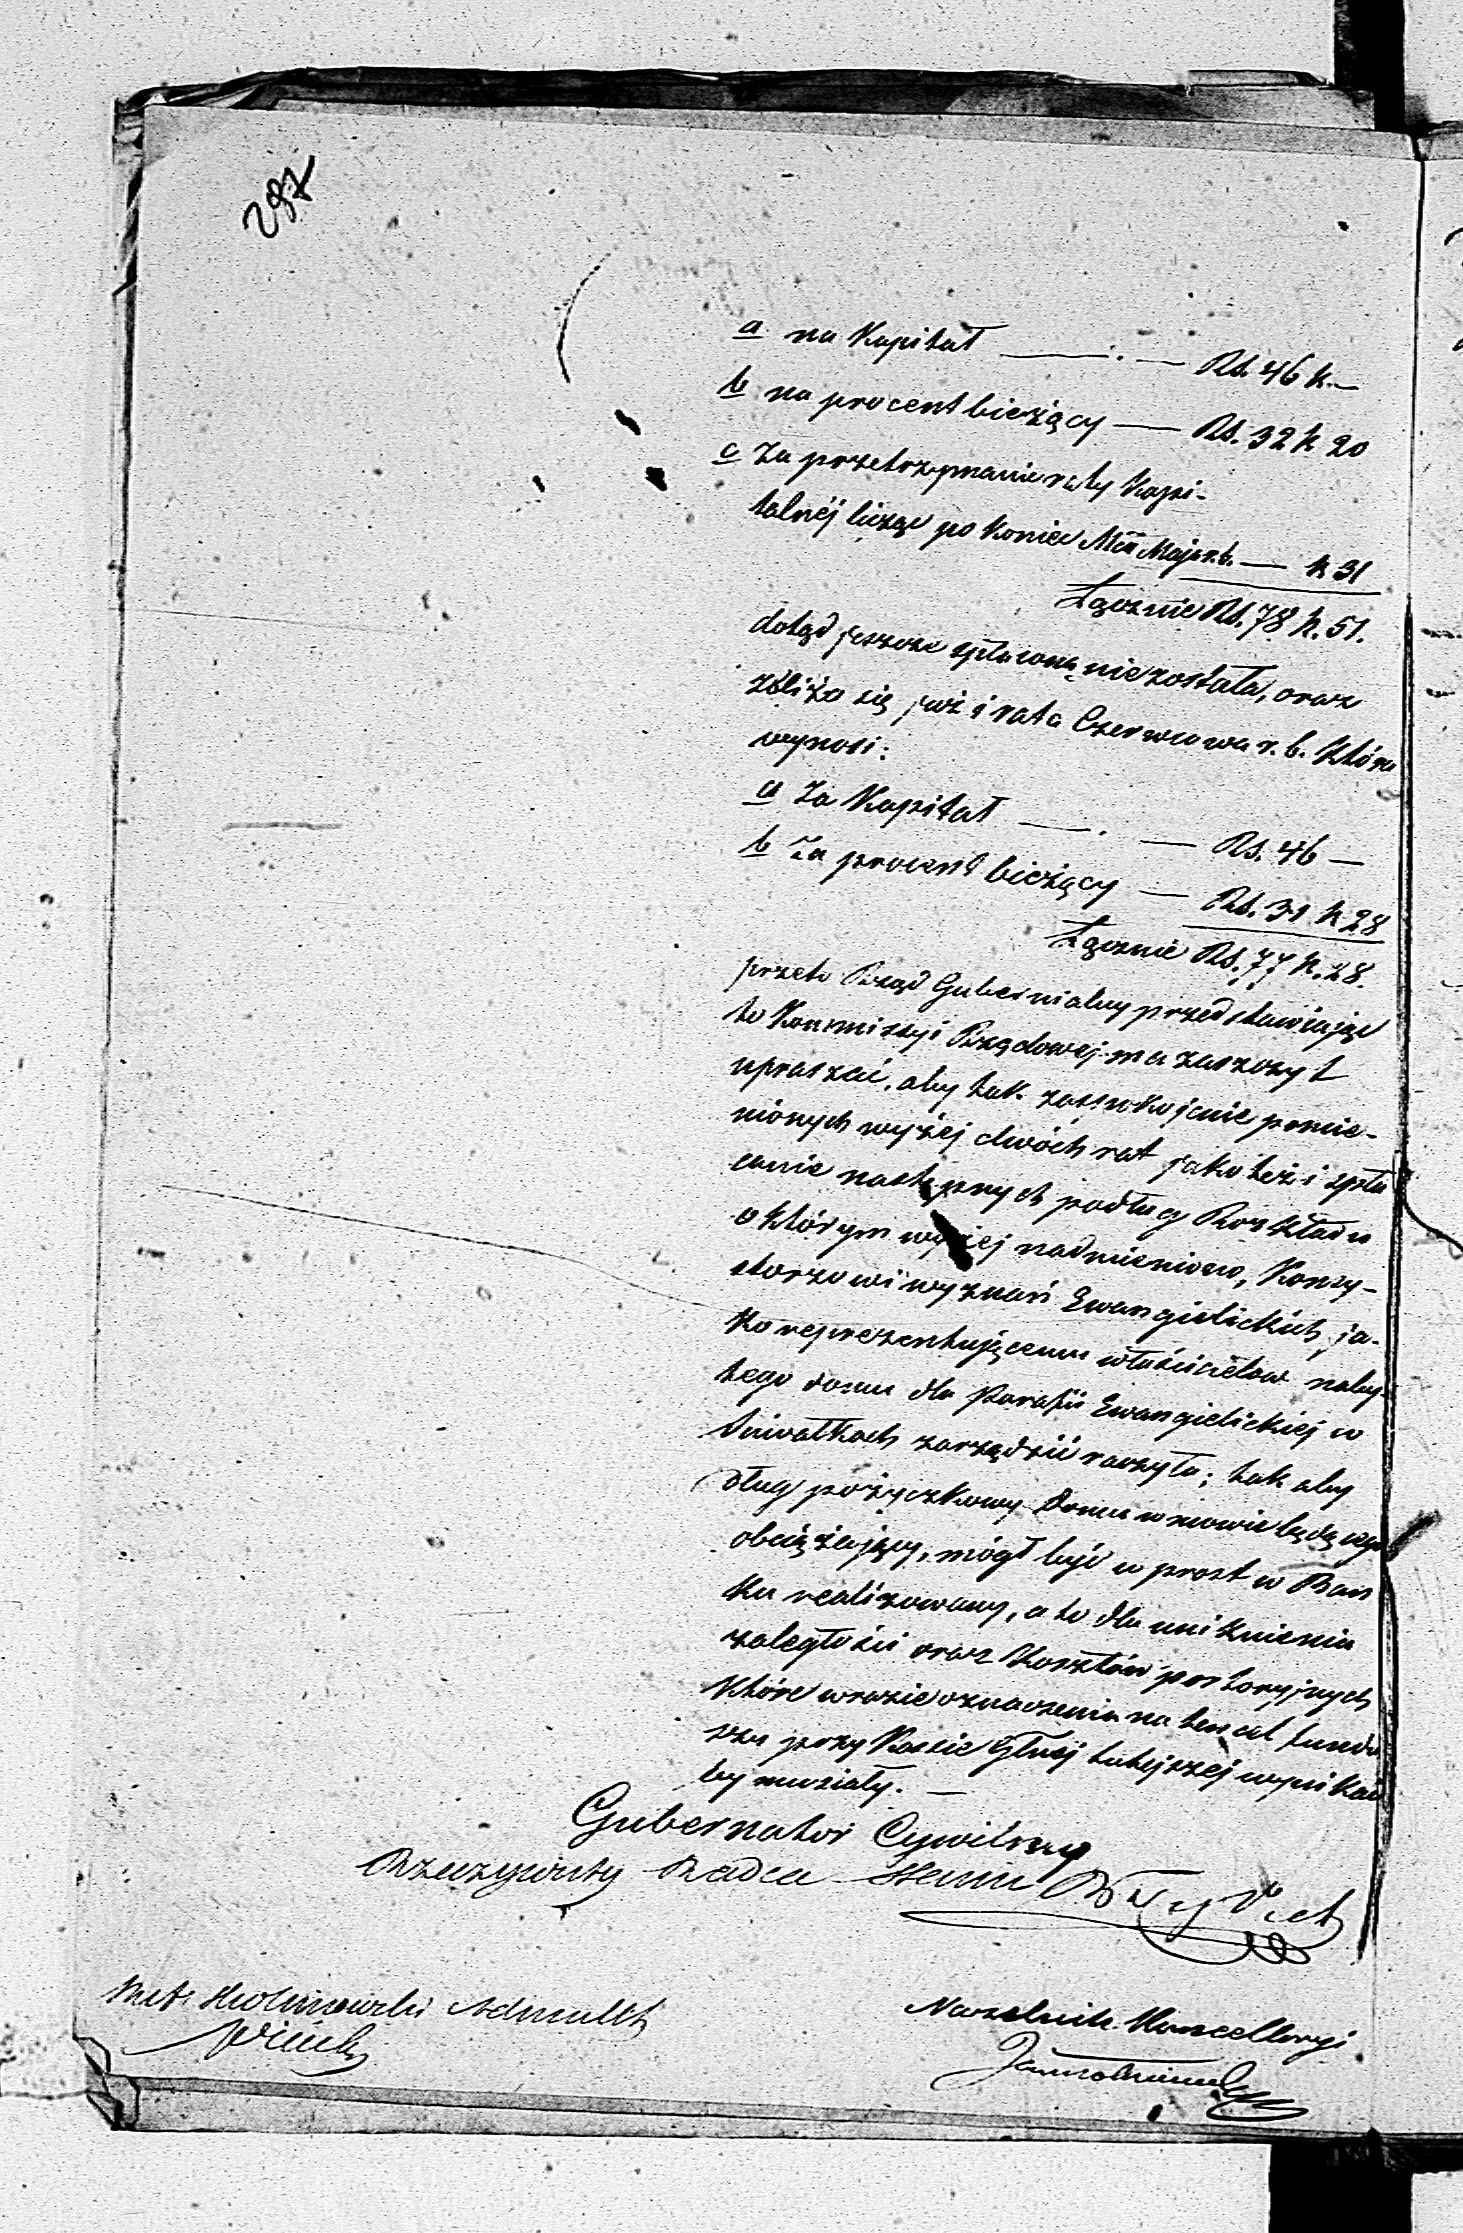 287
a na Kapitał —.— Rs. 46 k.—
b na procent bieżący — Rs. 32 k 20
c Za przetrzymanie raty Kapi-
talnéj licząc po koniec Mca Maja r.b. — k 31
Łącznie Rs. 78 k. 51.
dotąd jeszcze spłaconą nie została, oraz
zbliża się już i rata Czerwcowa r. b. która
wynosi:
a Za Kapitał —.— Rs. 46 —
b Za procent bieżący — Rs. 31 k 28
Łącznie Rs. 77 k. 28.
przeto Rząd Gubernialny przedstawiając
to Kommissyi Rządowej ma zaszczyt
upraszać, aby tak zaspokojenie pomie-
nionych wyżej dwóch rat jako też i spła
canie następnych podług Rozkładu
o którym wyżej nadmieniono, Konsy-
storzowi wyznań Ewangielickich, ja-
ko reprezentującemu właścicielow naby-
tego domu dla Parafii Ewangielickiej w
Suwałkach zarządzić raczyła; tak aby
dług pożyczkowy Domu w mowie będącego
obciążający, mógł być w prost w Ban
ku realizowany, a to dla uniknienia
zaległości oraz kosztów portoryjnych
które w razie oznaczenia na ten cel fundu
szu przy Kassie Głnej tutejszej wynikać
by musiały. —
Gubernator Cywilny
Rzeczywisty Radca Stanu
Naczelnik Kancellaryi